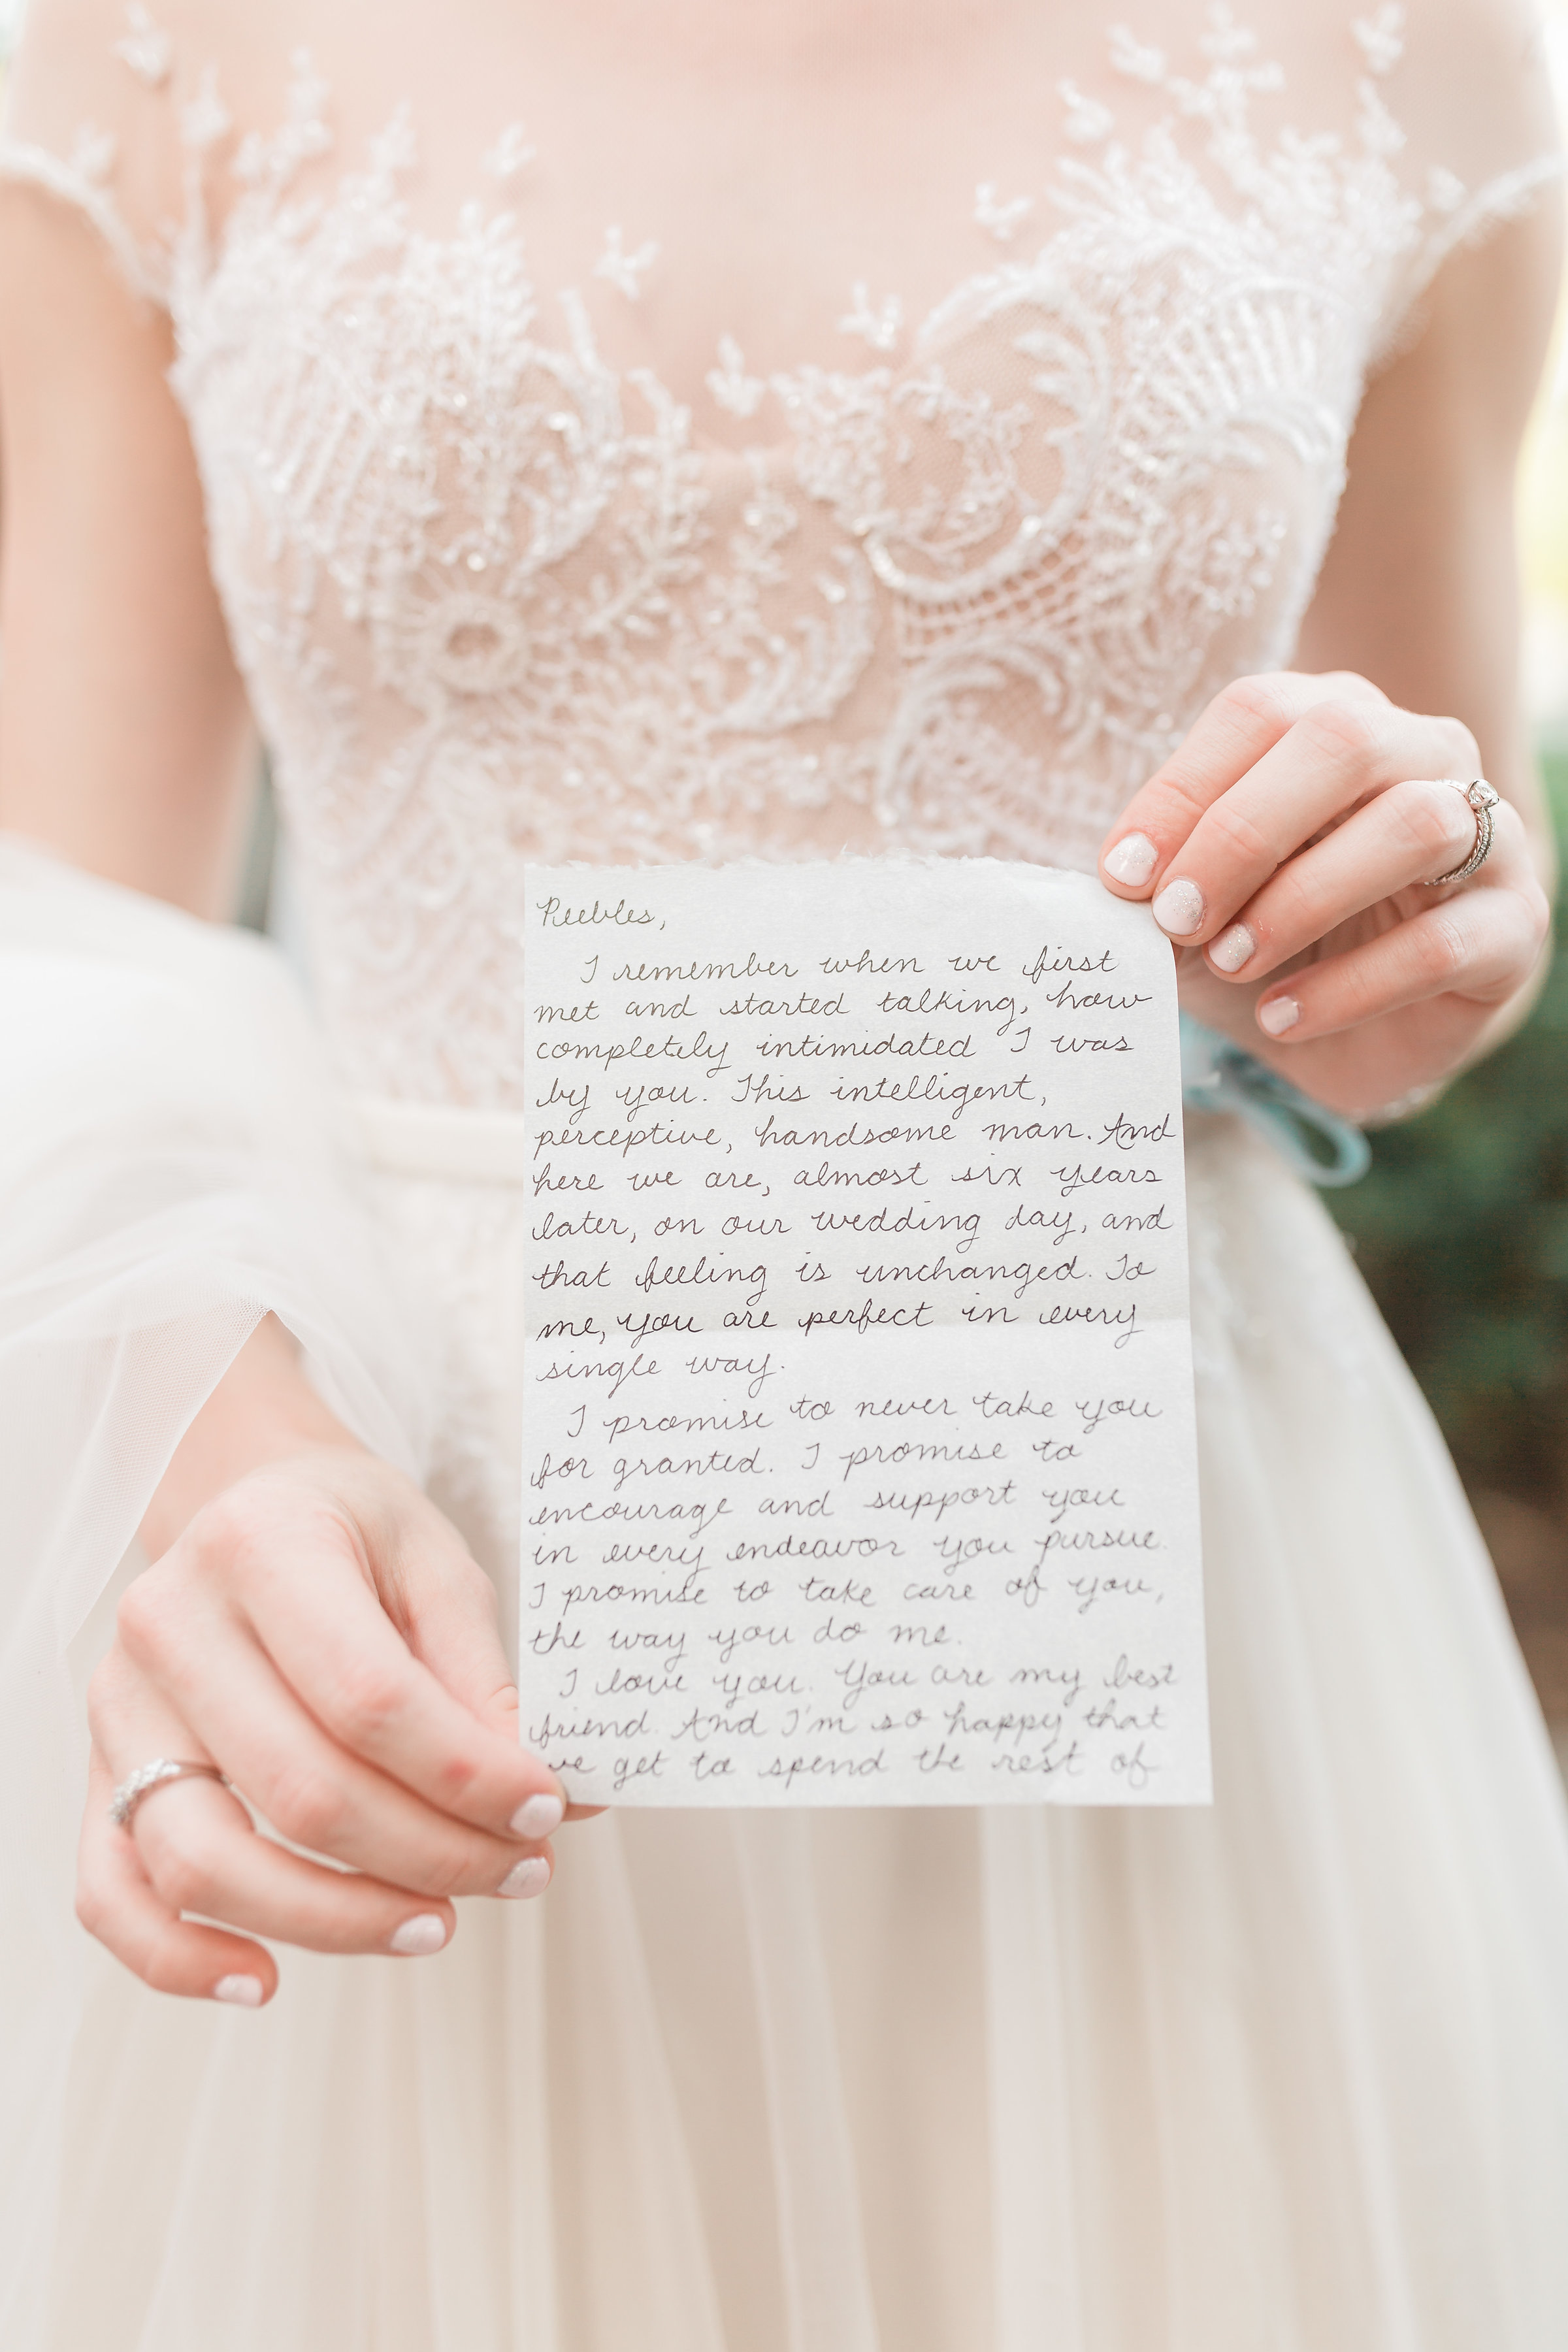 Peebles,
I remember when we first
met and started talking, how
completely intimidated I was
by you. This intelligent,
perceptive, handsome man. And
here we are, almost six years
later, on our wedding day, and
that feeling is unchanged. To
me, you are perfect in every
single way.
I promise to never take you
for granted. I promise to
encourage and support you
in every endeavor you pursue.
I promise to take care of you,
the way you do me.
I love you. You are my best
friend. And I'm so happy that
we get to spend the rest of